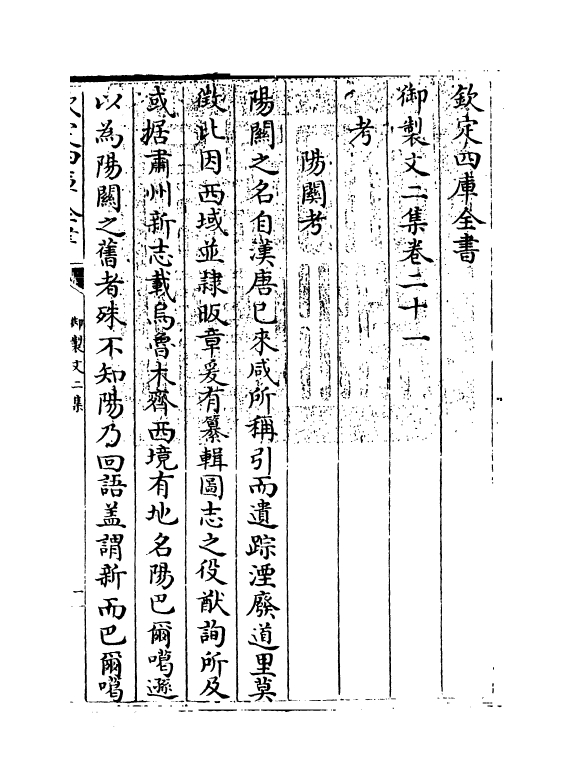 欽定四庫全書
御製文二集卷二十一
考
陽關考
陽關之名自漢唐已來咸所稱引而遺踪湮廢道里莫
徵此因西域並隷昄章爰有纂輯圖志之役猷詢所及
或据肅州新志載烏魯木齊西境有地名陽巴爾噶遜
以為陽關之舊者殊不知陽乃回語盖謂新而巴爾噶
欽定四庫全書
御製文二集
一